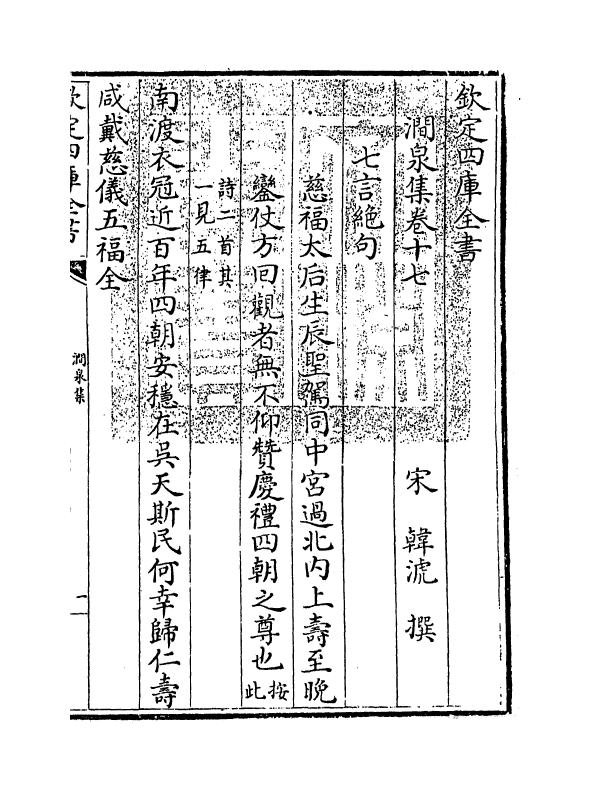 欽定四庫全書
澗泉集卷十七
宋 韓淲 撰
七言絶句
慈福太后生辰聖駕同中宮過北内上壽至晚
鑾仗方回觀者無不仰贊慶禮四朝之尊也按此
詩二首其一見五律
南渡衣冠近百年四朝安穩在吳天斯民何幸歸仁壽
咸戴慈儀五福全
欽定四庫全書
澗泉集